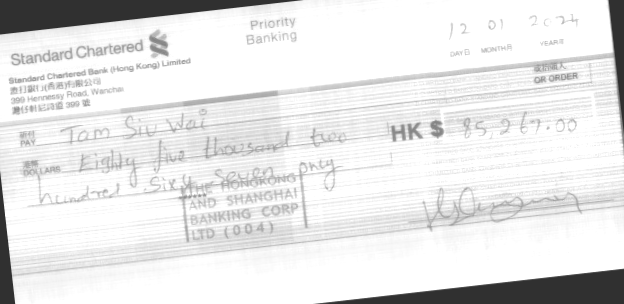 Standard Chartered
Priority
Banking
12 01 2024
DAY日 MONTH月 YEAR年
Standard Chartered Bank (Hong Kong) Limited
渣打銀行(香港)有限公司
399 Hennessy Road, Wanchai
灣仔軒尼詩道 399 號
或持票人
OR ORDER
祈付
PAY Tam Siu Wai
港幣
DOLLARS Eighty five thousand two
HK $ 85,267.00
hundred sixty seven only
THE HONGKONG
AND SHANGHAI
BANKING CORP
LTD (004)